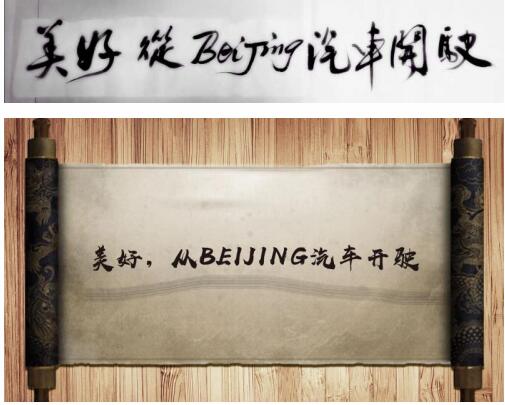 美好從Beijing汽車開駛
美好，从BEIJING汽车开驶